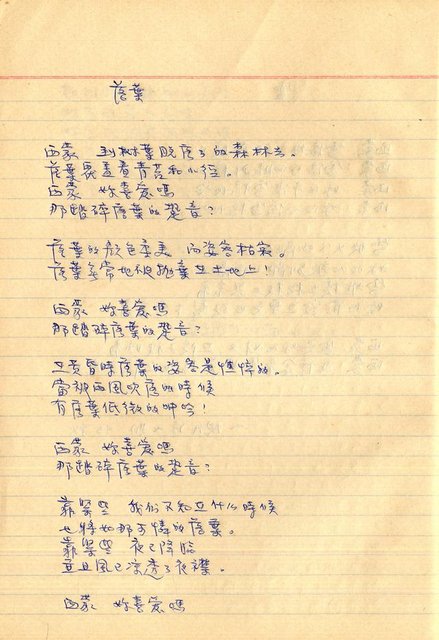 落葉
西蒙　到樹葉脫落了的森林去。
落葉裏蓋着青苔和小徑。
西蒙　妳喜愛嗎
那踏碎落葉的聲音？
落葉的顏色柔美　而姿容枯寂。
落葉無常地被拋棄在土地上！
西蒙　妳喜愛嗎
那踏碎落葉的聲音？
在黃昏時落葉的姿容是憔悴的。
當被西風吹落的時候
有落葉低微的呻吟！
西蒙　妳喜愛嗎
那踏碎落葉的聲音？
靠緊些　我們不知在什么時候
也將如那可憐的落葉。
靠緊些　夜已降臨
並且風已涼透了夜襟。
西蒙　妳喜愛嗎